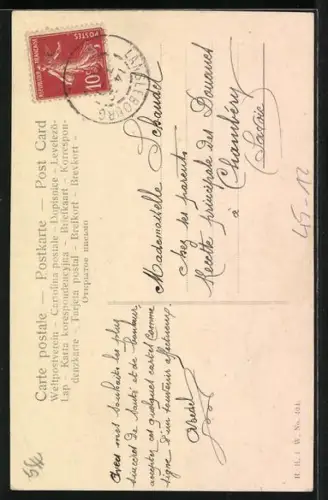 Carte postale — Postkarte — Post Card
Weltpostverein — Cartolina postale — Dopisnice — Levelező-
Lap — Karta korespondencyjna — Briefkaart — Korrespon-
denzkarte — Tarjeta postal — Brefkort — Brevkort —
Открытое письмо
POSTES
10c
RÉPUBLIQUE FRANÇAISE
Mademoiselle Schaudel
chez ses parents
Recette principale des Douanes
à Chambéry
(Savoie)
Avec mes souhaits les plus
sincères de santé et de bonheur,
acceptez ces quelques cartes comme
signe d'un souvenir affectueux.
45-12
H. H. i. W. No. 484.